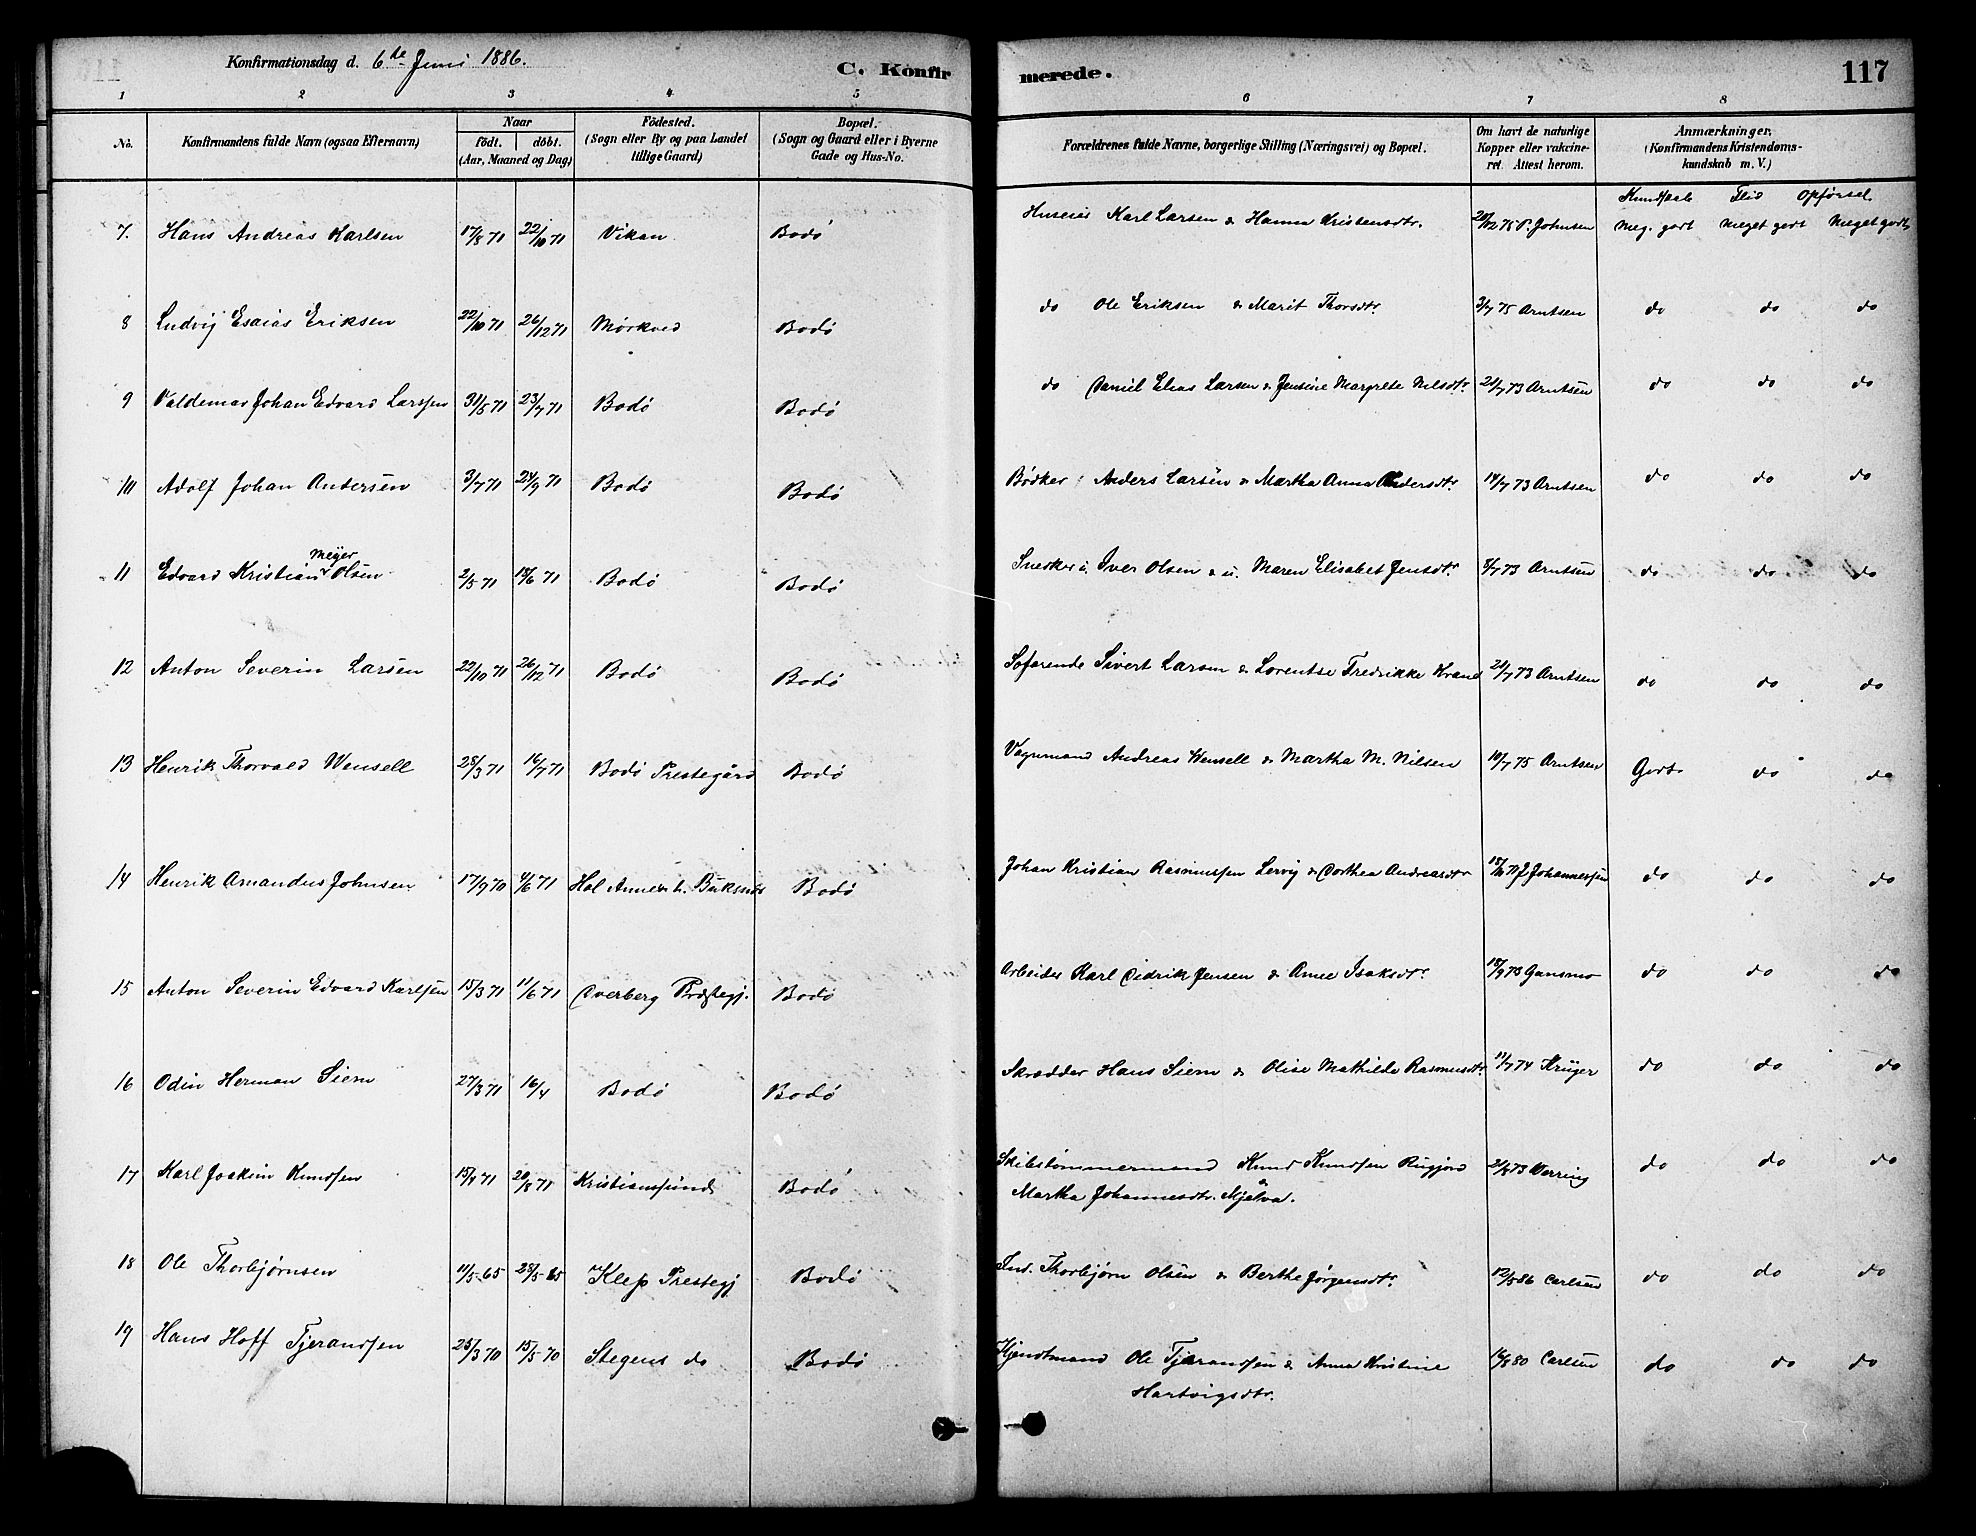 Konfirmationsdag d. 6te Juni 1886.
C. Konfirmerede.
117
1 2 3 4 5 6 7 8
No.
Konfirmandens fulde Navn (ogsaa Efternavn)
Naar
födt. döbt.
(Aar, Maaned og Dag)
Födested.
(Sogn eller By og paa Landet
tillige Gaard)
Bopæl.
(Sogn og Gaard eller i Byerne
Gade og Hus-No.
Forældrenes fulde Navne, borgerlige Stilling (Næringsvei) og Bopæl.
Om havt de naturlige
Kopper eller vakcine-
ret. Attest herom.
Anmærkninger,
(Konfirmandens Kristendoms-
kundskab m. V.)
Kundskab Flid Opførsel.
7. Hans Andreas Karlsen 17/8 71 22/10 71 Vikan Bodø Huseier Karl Larsen & Hanna Kristensdtr. 20/12 75 P. Johnsen Meg. godt Meget godt Meget godt
8 Ludvig Esaias Eriksen 22/10 71 26/12 71 Mørkved Bodø do Ole Eriksen & Marit Thorsdtr. 3/7 75 Arntsen do do do
9 Valdemar Johan Edvard Larssen 31/5 71 23/7 71 Bodø Bodø do Daniel Elias Larsen & Jensine Margrete Nilsdtr. 21/7 73 Arntsen do do do
10 Adolf Johan Andersen 3/7 71 24/9 71 Bodø Bodø Bødker Anders Larsen & Martha Anna Andersdtr. 14/7 73 Arntsen do do do
11 Edvard Kristian Meyer Olsen 2/5 71 18/6 71 Bodø Bodø Snedker u. Iver Olsen & u. Maren Elisabet Jensdtr. 8/7 73 Arntsen do do do
12 Anton Severin Larsen 22/10 71 26/12 71 Bodø Bodø Søfarende Sivert Larsen & Lorentse Fredrikke Krane 21/7 73 Arntsen do do do
13 Henrik Thorvald Wensell 28/3 71 16/7 71 Bodø Prestegård Bodø Vognmand Andreas Wensell & Martha M. Nilsen 10/7 75 Arntsen Godt do do
14 Henrik Amandus Johnsen 17/9 70 4/6 71 Hol Annex t. Buksnes Bodø Johan Kristian Rasmussen Lervig & Dorthea Andreasdtr J Johannessen do do do
15 Anton Severin Edvard Karlsen 15/3 71 11/6 71 Øverberg Præstegj. Bodø Arbeider Karl Didrik Jensen & Anne Isaksdtr. 18/9 73 Gansmo do do do
16 Odin Herman Siem 27/3 71 16/4 Bodø Bodø Skrædder Hans Siem & Oline Mathilde Rasmusdtr. 11/7 74 Krüger do do do
17 Karl Joakim Knudsen 15/4 71 20/8 71 Kristianssund Bodø Skibstømmermand Knud Knudsen Rugjord & 2/8 73 Werring do do do
Martha Johannesdtr. Mjelva.
18 Ole Thorbjørnsen 11/5 65 28/5 65 Klep Prestegj Bodø Ind. Thorbjørn Olsen & Berthe Jørgensdtr. 12/5 86 Carlsen do do do
19 Hans Hoff Tjerandsen 23/3 70 15/5 70 Stegens do Bodø Kjendtmand Ole Tjerandsen & Anna Kristine 16/8 80 Carlsen do do do
Hartvigsdtr.